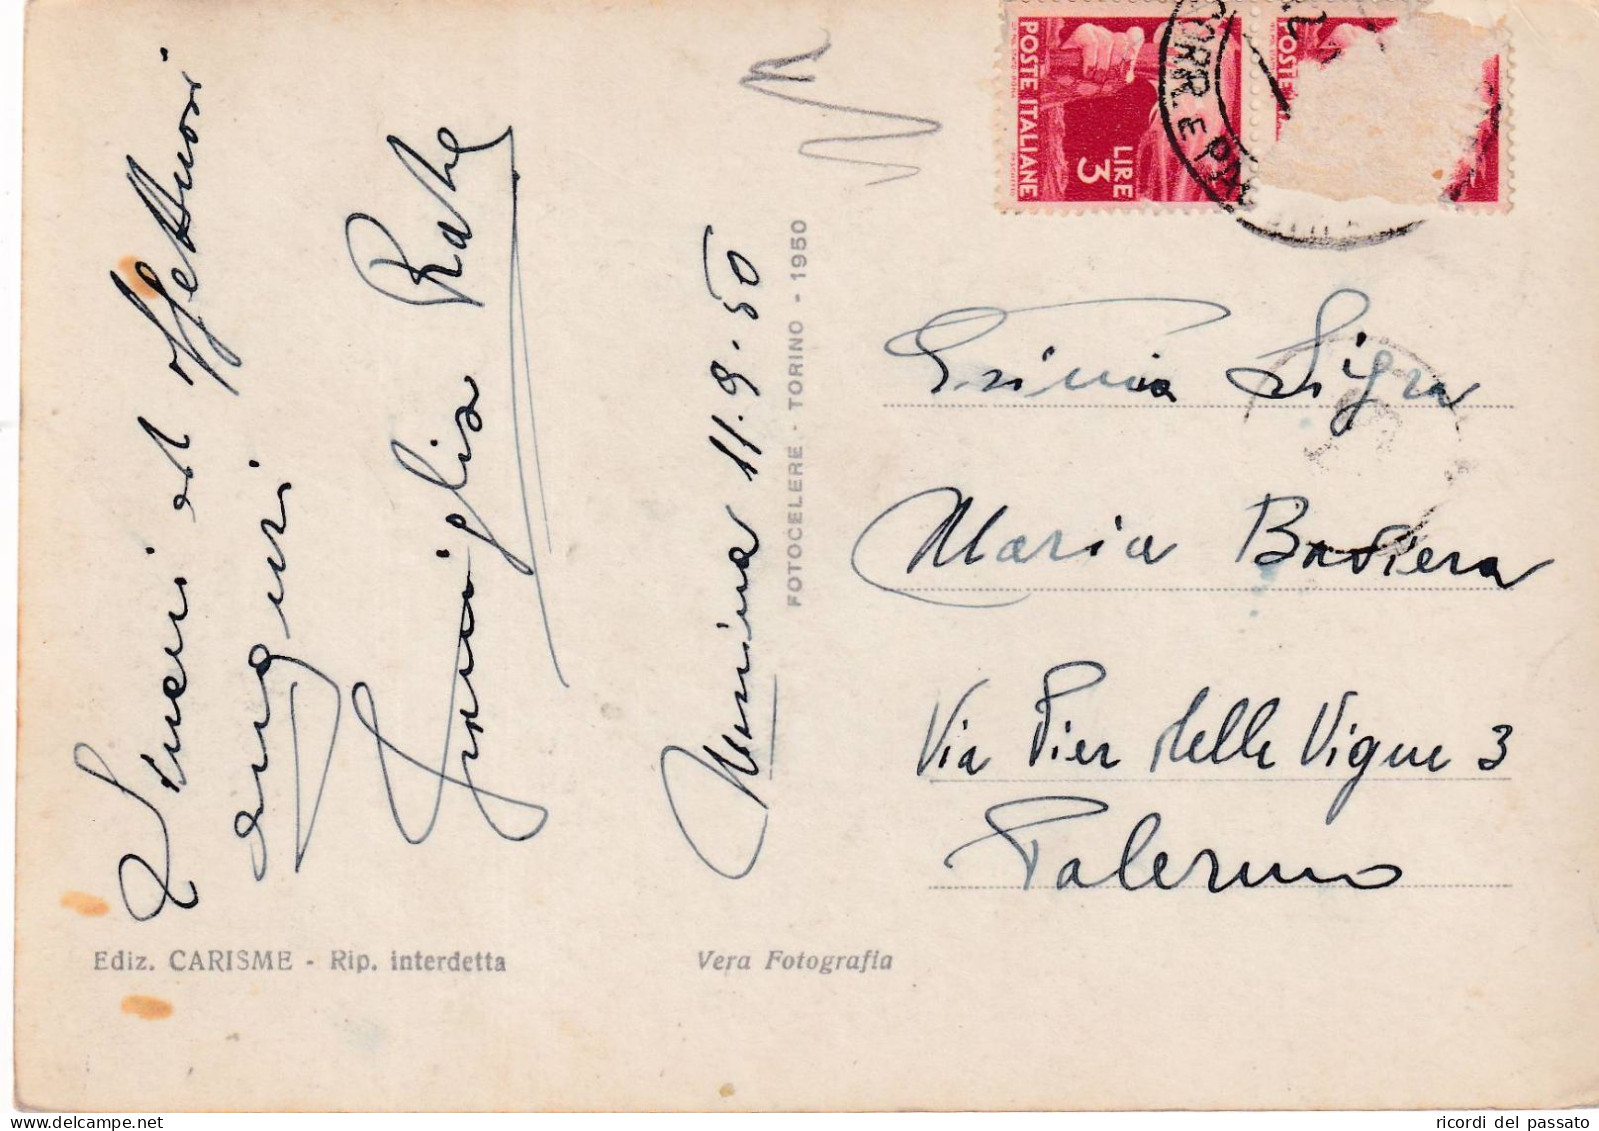 Sinceri ed affettuosi
auguri
Famiglia
Messina 11.9.50
FOTOCELERE - TORINO - 1950
POSTE ITALIANE
LIRE
3
POSTE
CORR. E PA
Sigra
Maria Badiera
Via Pier delle Vigne 3
Palermo
Ediz. CARISME - Rip. interdetta
Vera Fotografia
ricordi del passato